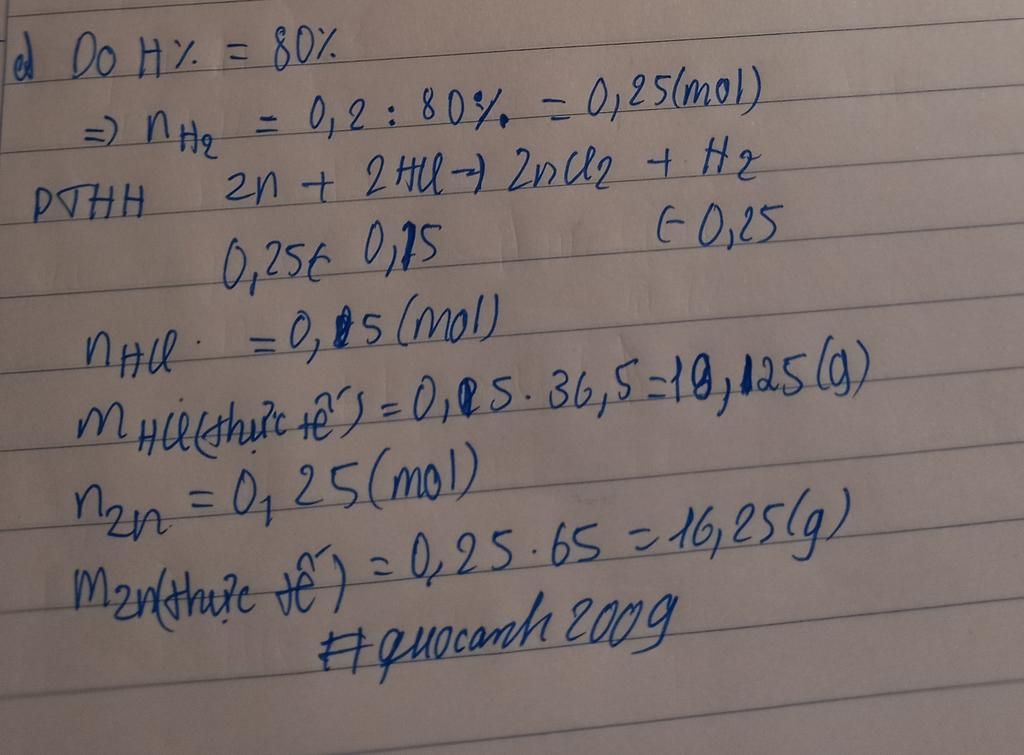 d) Do H% = 80%
=) nH2 = 0,2 : 80% = 0,25(mol)
PTHH Zn + 2HCl → ZnCl2 + H2
0,25 ← 0,15 ← 0,25
nHCl = 0,15 (mol)
mHCl(thực tế) = 0,15 . 36,5 = 18,125(g)
nZn = 0,25(mol)
mZn(thực tế) = 0,25 . 65 = 16,25(g)
#quocanh2009